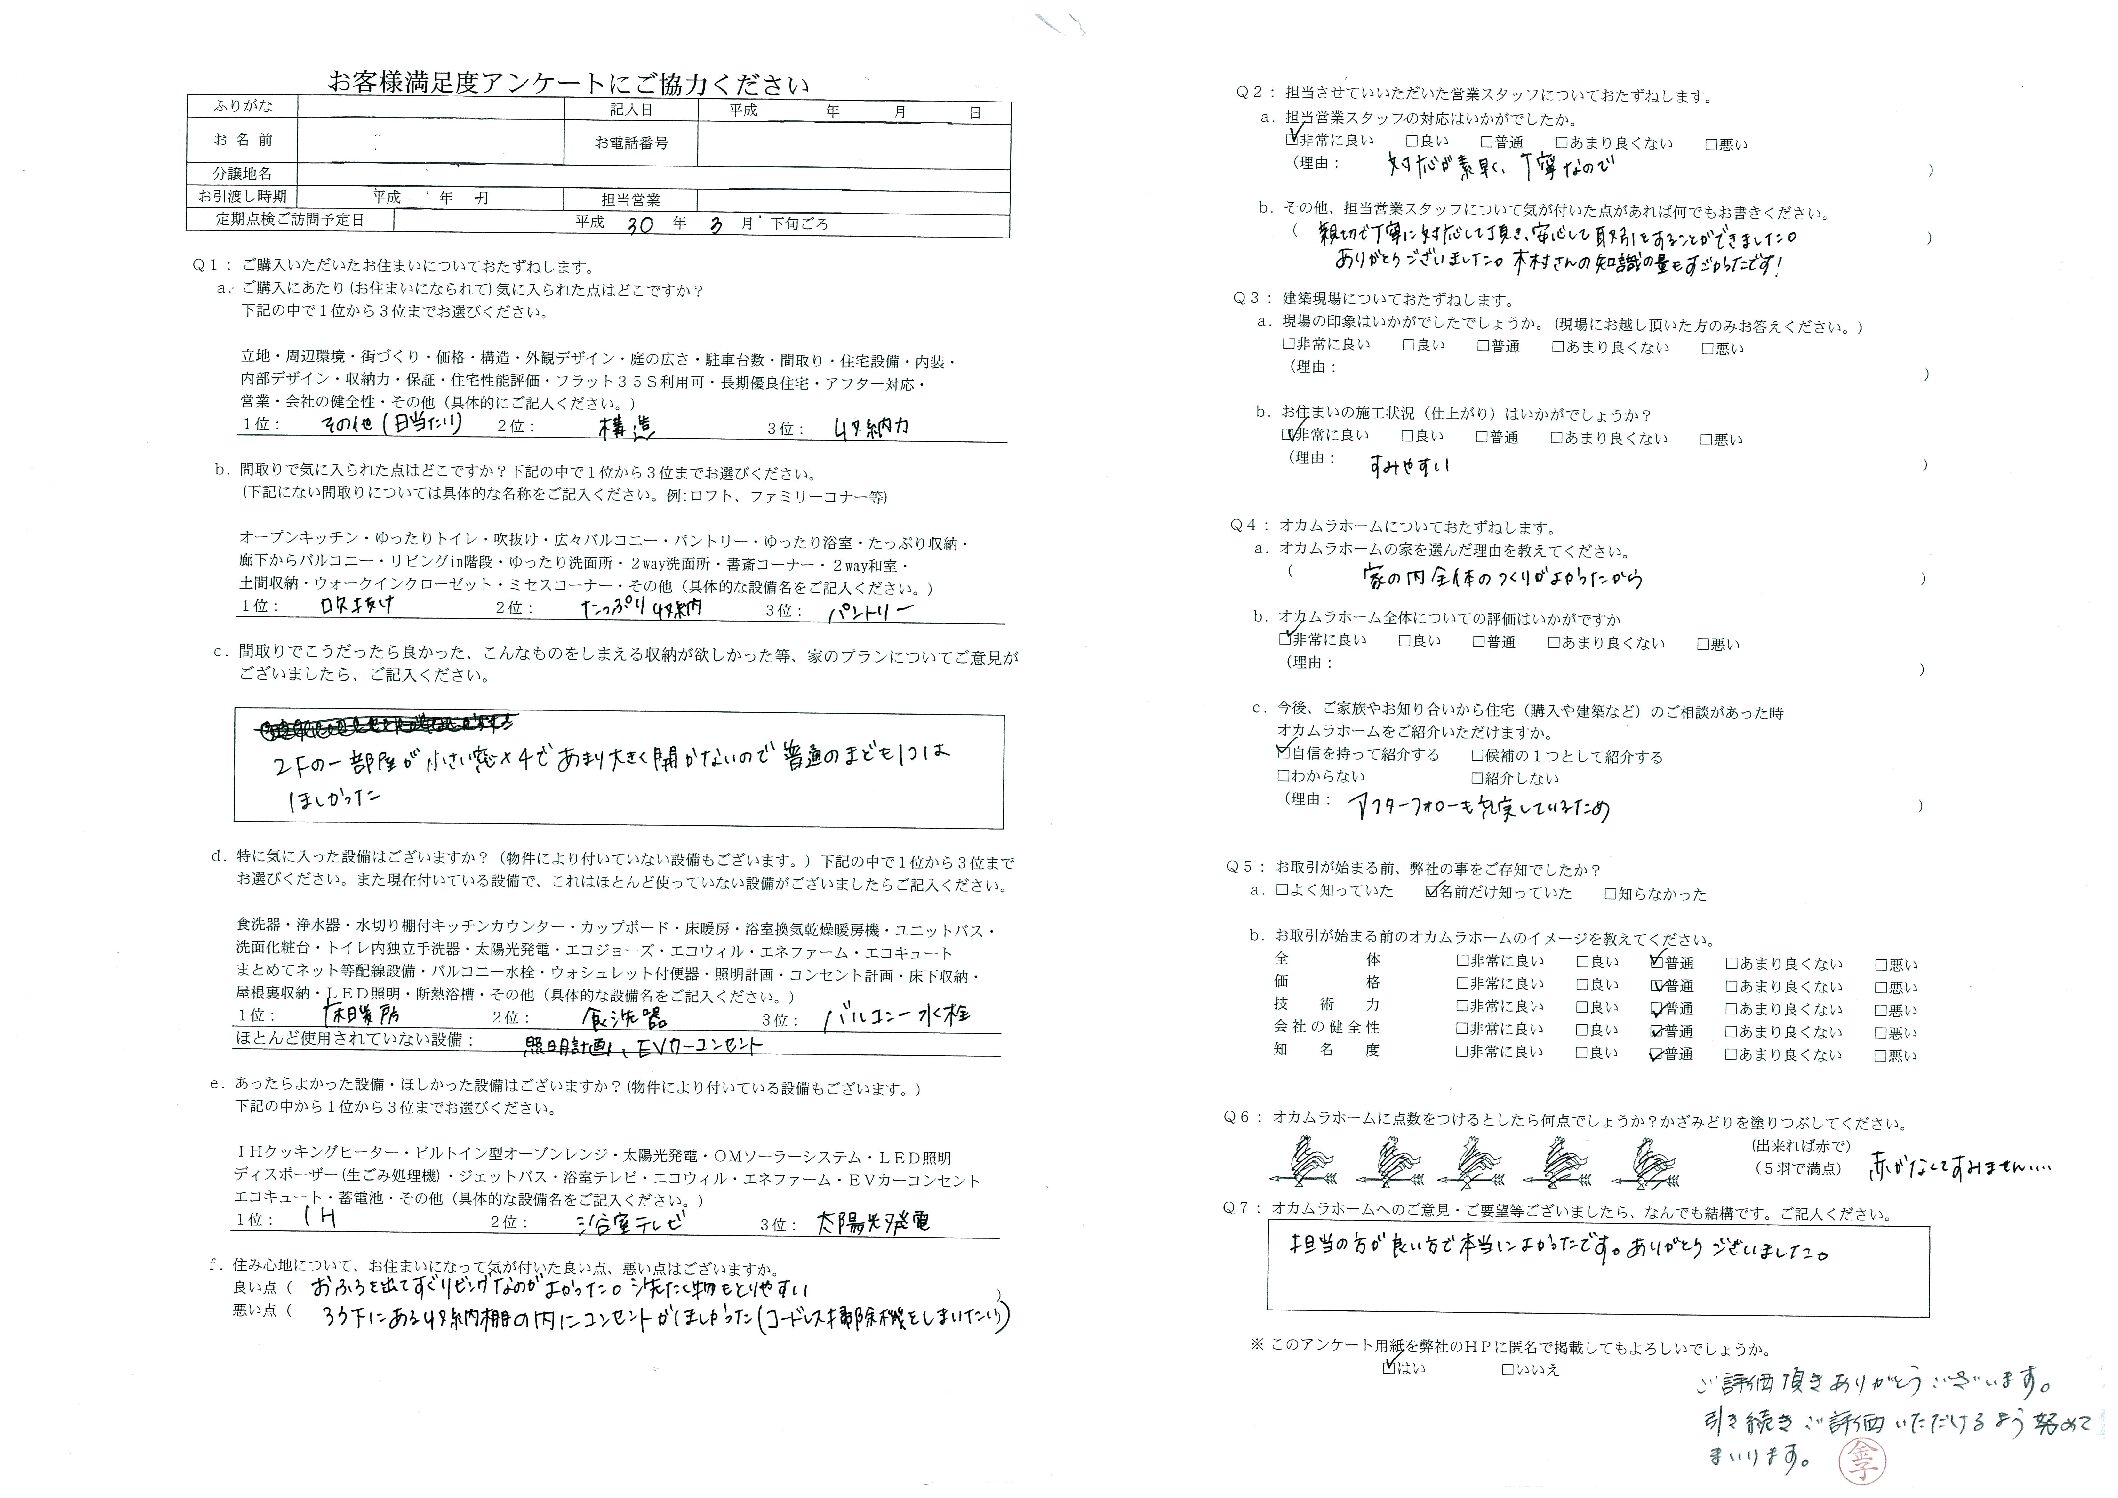 お客様満足度アンケートにご協力ください
ふりがな 記入日 平成 年 月 日
お名前 お電話番号
分譲地名
お引渡し時期 平成 年 月 担当営業
定期点検ご訪問予定日 平成 30 年 3 月 下旬ごろ
Q1：ご購入いただいたお住まいについておたずねします。
a．ご購入にあたり(お住まいになられて)気に入られた点はどこですか？
下記の中で1位から3位までお選びください。
立地・周辺環境・街づくり・価格・構造・外観デザイン・庭の広さ・駐車台数・間取り・住宅設備・内装・
内部デザイン・収納力・保証・住宅性能評価・フラット35S利用可・長期優良住宅・アフター対応・
営業・会社の健全性・その他（具体的にご記入ください。）
1位： その他(日当たり) 2位： 構造 3位： 収納力
b．間取りで気に入られた点はどこですか？下記の中で1位から3位までお選びください。
(下記にない間取りについては具体的な名称をご記入ください。例:ロフト、ファミリーコナー等)
オープンキッチン・ゆったりトイレ・吹抜け・広々バルコニー・パントリー・ゆったり浴室・たっぷり収納・
廊下からバルコニー・リビングin階段・ゆったり洗面所・2way洗面所・書斎コーナー・2way和室・
土間収納・ウォークインクローゼット・ミセスコーナー・その他（具体的な設備名をご記入ください。）
1位： 吹抜け 2位： たっぷり収納 3位： パントリー
c．間取りでこうだったら良かった、こんなものをしまえる収納が欲しかった等、家のプランについてご意見が
ございましたら、ご記入ください。
2Fの一部屋が小さい窓×4であまり大きく開かないので普通のまども1コは
ほしかった
d．特に気に入った設備はございますか？（物件により付いていない設備もございます。）下記の中で1位から3位まで
お選びください。また現在付いている設備で、これはほとんど使っていない設備がございましたらご記入ください。
食洗器・浄水器・水切り棚付キッチンカウンター・カップボード・床暖房・浴室換気乾燥暖房機・ユニットバス・
洗面化粧台・トイレ内独立手洗器・太陽光発電・エコジョーズ・エコウィル・エネファーム・エコキュート
まとめてネット等配線設備・バルコニー水栓・ウォシュレット付便器・照明計画・コンセント計画・床下収納・
屋根裏収納・LED照明・断熱浴槽・その他（具体的な設備名をご記入ください。）
1位： 2位： 食洗器 3位： バルコニー水栓
ほとんど使用されていない設備： 照明計画、EVカーコンセント
e．あったらよかった設備・ほしかった設備はございますか？(物件により付いている設備もございます。）
下記の中から1位から3位までお選びください。
IHクッキングヒーター・ビルトイン型オーブンレンジ・太陽光発電・OMソーラーシステム・LED照明
ディスポーザー(生ごみ処理機)・ジェットバス・浴室テレビ・エコウィル・エネファーム・EVカーコンセント
エコキュート・蓄電池・その他（具体的な設備名をご記入ください。）
1位： IH 2位： 浴室テレビ 3位： 太陽光発電
f．住み心地について、お住まいになって気が付いた良い点、悪い点はございますか。
良い点（ おふろを出てすぐリビングなのがよかった。洗たく物もとりやすい ）
悪い点（ ろう下にある収納棚の内にコンセントがほしかった(コードレス掃除機をしまいたい)）
Q2：担当させていいただいた営業スタッフについておたずねします。
a．担当営業スタッフの対応はいかがでしたか。
☑非常に良い □良い □普通 □あまり良くない □悪い
（理由： 対応が素早く、丁寧なので ）
b．その他、担当営業スタッフについて気が付いた点があれば何でもお書きください。
（ 親切で丁寧に対応して頂き、安心して取引をすることができました。 ）
ありがとうございました。木村さんの知識の量もすごかったです！
Q3：建築現場についておたずねします。
a．現場の印象はいかがでしたでしょうか。(現場にお越し頂いた方のみお答えください。）
□非常に良い □良い □普通 □あまり良くない □悪い
（理由： ）
b．お住まいの施工状況（仕上がり）はいかがでしょうか？
☑非常に良い □良い □普通 □あまり良くない □悪い
（理由： すみやすい ）
Q4：オカムラホームについておたずねします。
a．オカムラホームの家を選んだ理由を教えてください。
（ 家の内全体のつくりがよかったから ）
b．オカムラホーム全体についての評価はいかがですか
☑非常に良い □良い □普通 □あまり良くない □悪い
（理由： ）
c．今後、ご家族やお知り合いから住宅（購入や建築など）のご相談があった時
オカムラホームをご紹介いただけますか。
☑自信を持って紹介する □候補の1つとして紹介する
□わからない □紹介しない
（理由： アフターフォローも充実しているため ）
Q5：お取引が始まる前、弊社の事をご存知でしたか？
a．□よく知っていた ☑名前だけ知っていた □知らなかった
b．お取引が始まる前のオカムラホームのイメージを教えてください。
全体 □非常に良い □良い ☑普通 □あまり良くない □悪い
価格 □非常に良い □良い ☑普通 □あまり良くない □悪い
技術力 □非常に良い □良い ☑普通 □あまり良くない □悪い
会社の健全性 □非常に良い □良い ☑普通 □あまり良くない □悪い
知名度 □非常に良い □良い ☑普通 □あまり良くない □悪い
Q6：オカムラホームに点数をつけるとしたら何点でしょうか？かざみどりを塗りつぶしてください。
(出来れば赤で)
（5羽で満点） 赤がなくてすみません….
Q7：オカムラホームへのご意見・ご要望等ございましたら、なんでも結構です。ご記入ください。
担当の方が良い方で本当によかったです。ありがとうございました。
※このアンケート用紙を弊社のHPに匿名で掲載してもよろしいでしょうか。
☑はい □いいえ
ご評価頂きありがとうございます。
引き続きご評価いただけるよう努めて
まいります。 金子